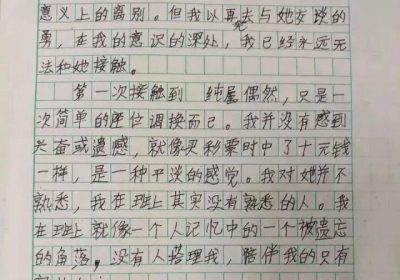 意义上的离别。但我以再去与她交谈的
勇，在我的意识的深处，我已经永远无
法和她接触。
第一次接触到 纯属偶然，只是一
次简单的座位调换而已。我并没有感到
兴奋或遗憾，就像买彩票时中了十元钱
一样，是一种平淡的感觉。我对她并不
熟悉，我在班上其实没有熟悉的人。我
在班上就像一个人记忆中的一个被遗忘
的角落，没有人搭理我，陪伴我的只有